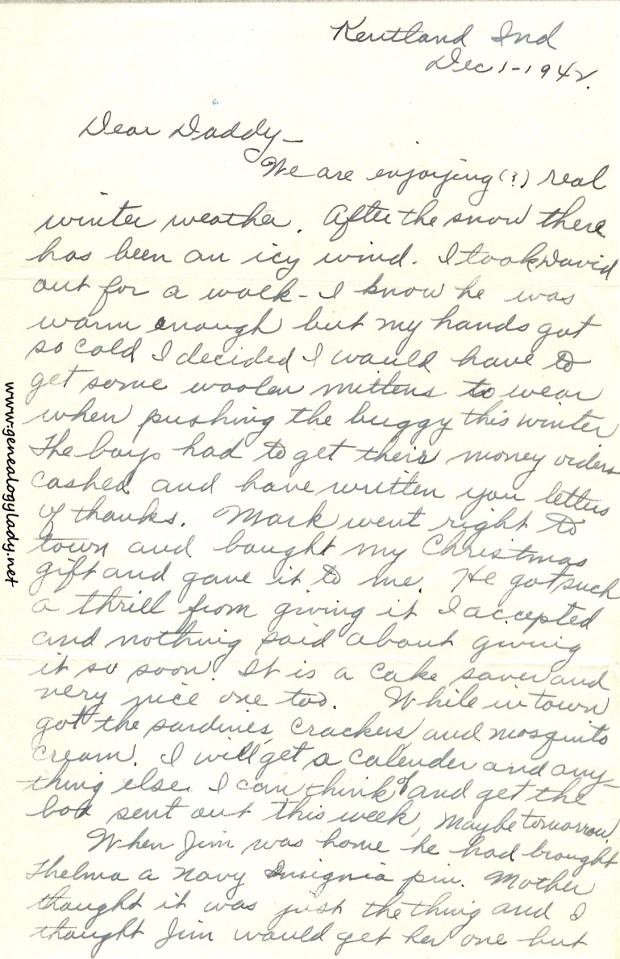 Kentland Ind
Dec 1-1942.
Dear Daddy-
We are enjoying(?) real
winter weather. After the snow there
has been an icy wind. I took David
out for a walk - I know he was
warm enough but my hands got
so cold I decided I would have to
get some woolen mittens to wear
when pushing the buggy this winter
The boys had to get their money orders
cashed and have written you letters
of thanks. Mark went right to
town and bought my Christmas
gift and gave it to me. He got such
a thrill from giving it I accepted
and nothing said about giving
it so soon. It is a cake saver and
very nice one too. While in town
got the sardines, crackers, and mosquito
cream. I will get a calender and any-
thing else I can think of and get the
box sent out this week, maybe tomorrow.
When Jim was home he had brought
Thelma a Navy Insignia pin. Mother
thought it was just the thing and I
thought Jim would get her one but
www.genealogylady.net